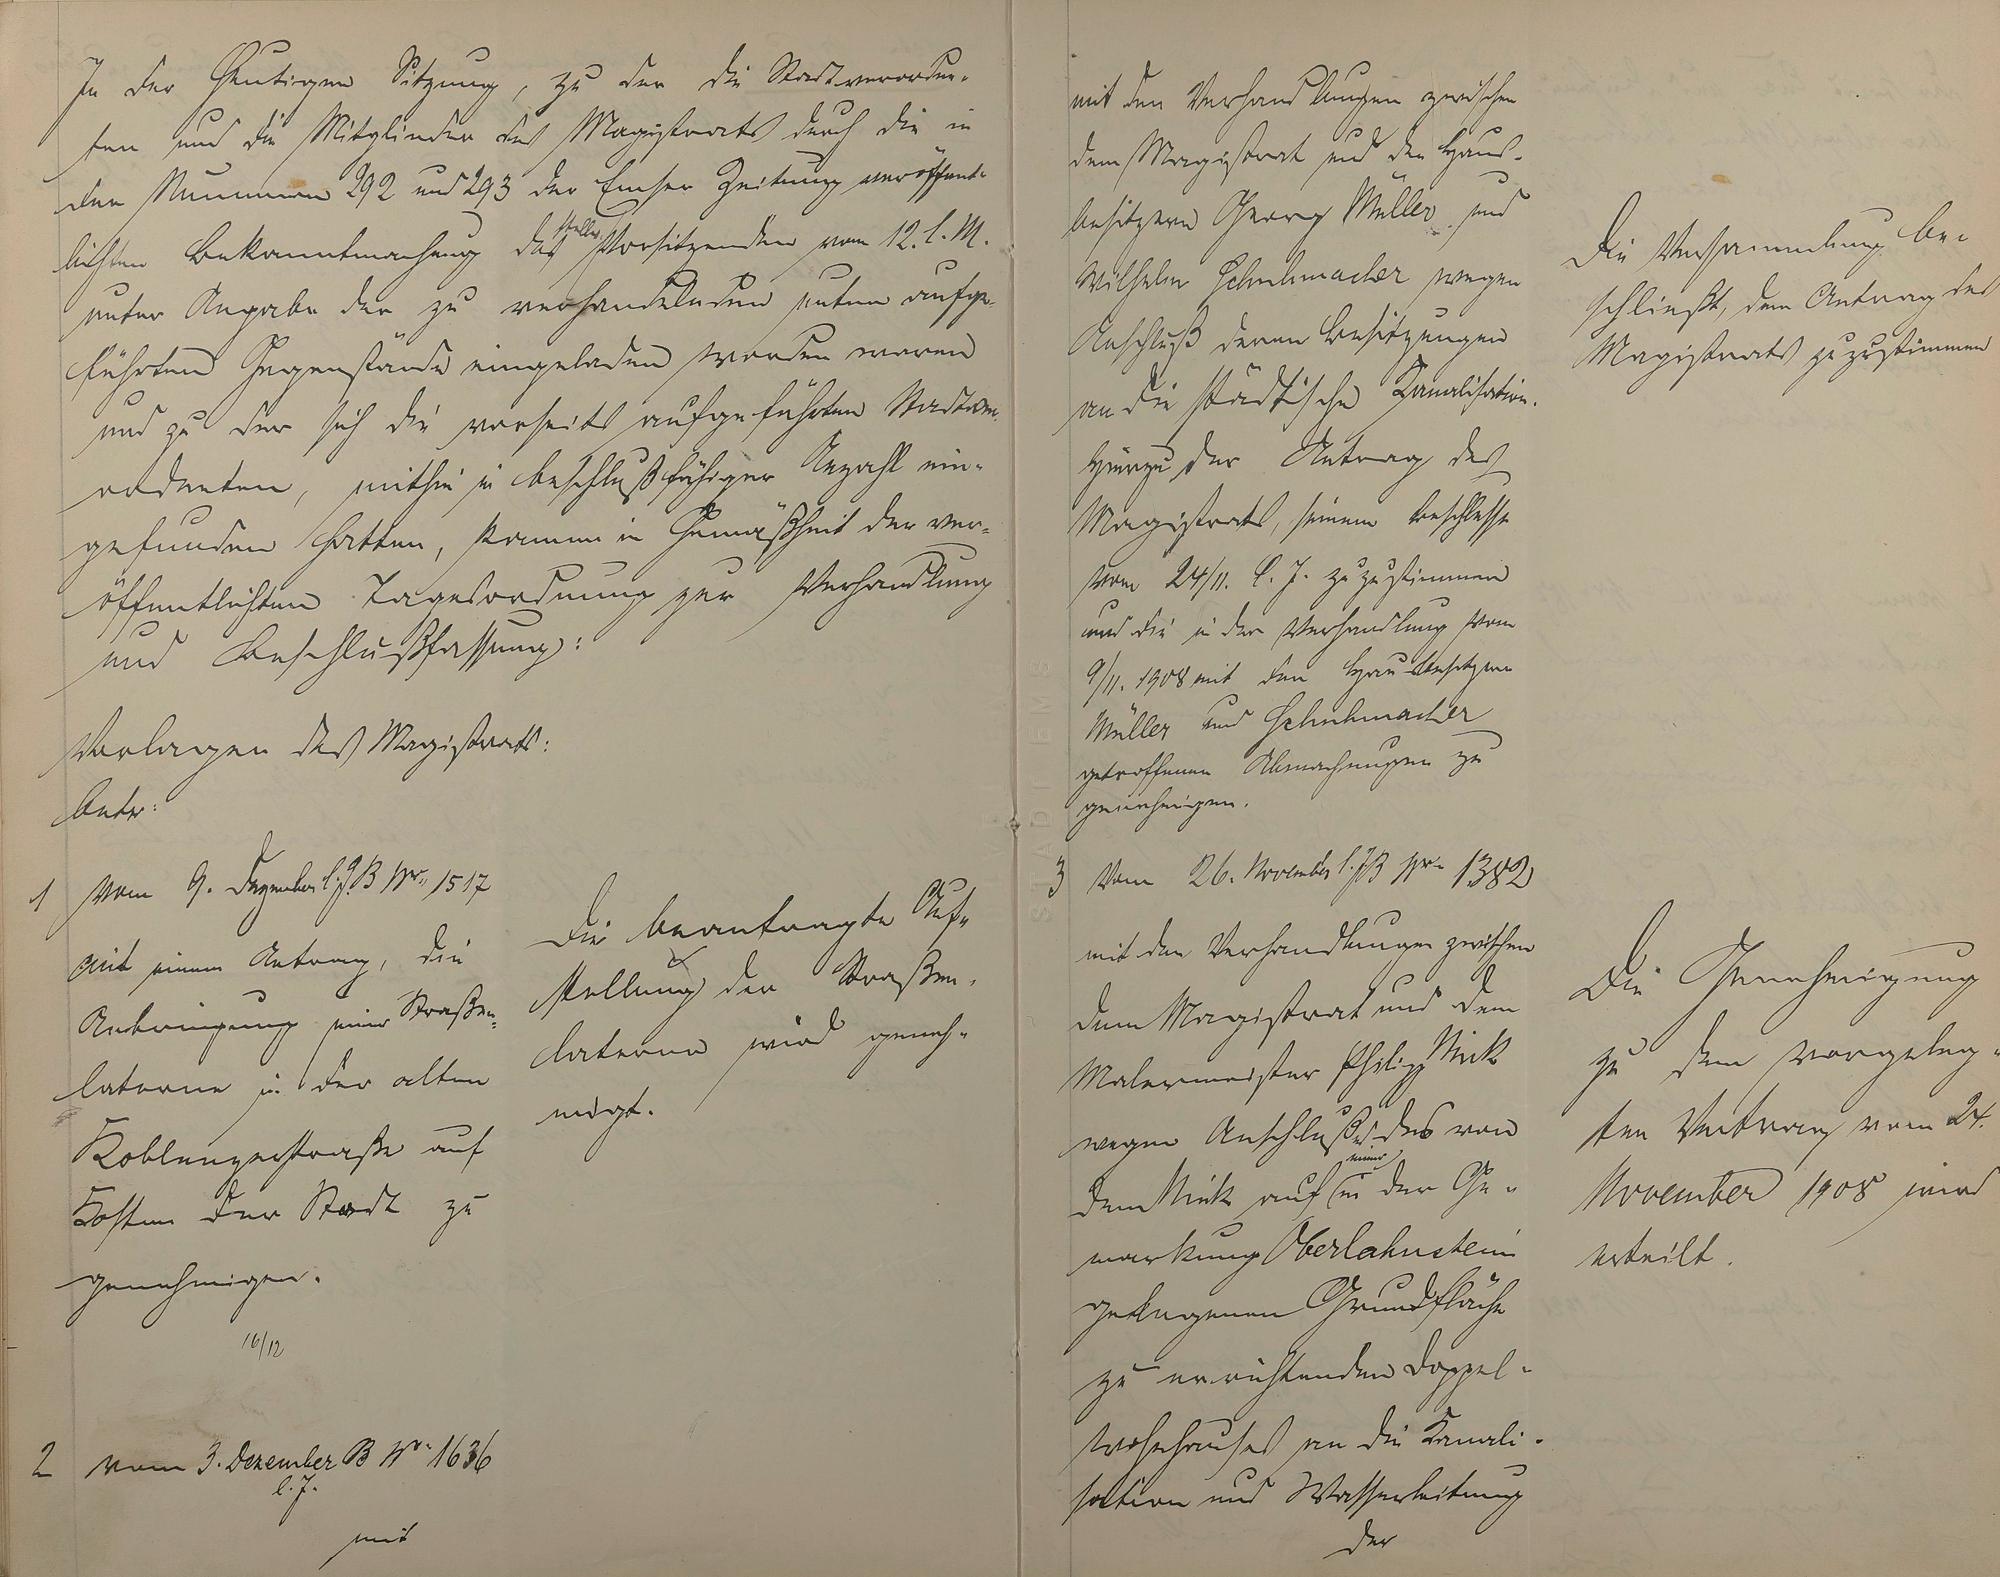 In der heutigen Sitzung, zu der die Stadtverordne-
ten und die Mitglieder des Magistrats durch die in
den Nummern 292 und 293 der Emser Zeitung veröffent-
lichten Bekanntmachung des stellv. Vorsitzenden vom 12. l. M.
unter Angabe der zu verhandelnden unten aufge-
führten Gegenstände eingeladen worden waren
und zu der sich die vorseits aufgeführten Stadtver-
ordneten, mithin in beschlußfähiger Anzahl ein-
gefunden hatten, kamen in Gemäßheit der ver-
öffentlichten Tagesordnung zur Verhandlung
und Beschlußfassung:
Vorlagen des Magistrats:
betr:
1 vom 9. Dezember l. J. B Nr. 1517
mit einem Antrag, die
Anbringung einer Straßen-
laterne in der alten
Koblenzerstraße auf
Kosten der Stadt zu
genehmigen.
16/12
Die beantragte Auf-
stellung der Straßen-
laterne wird geneh-
migt.
2 vom 3. Dezember B Nr. 1636
l. J.
mit
mit den Verhandlungen zwischen
dem Magistrat und den Haus-
besitzern Georg Müller und
Wilhelm Schuhmacher wegen
Anschluß deren Besitzungen
an die städtische Kanalisation.
Hierzu der Antrag des
Magistrats, seinem Beschlusse
vom 24/11. l. J. zuzustimmen
und die in der Verhandlung vom
9/11. 1908 mit den Hausbesitzern
Müller und Schuhmacher
getroffenen Abmachungen zu
genehmigen.
Die Versammlung be-
schließt, dem Antrag des
Magistrats zuzustimmen
3 Vom 26. November l. J. B Nr. 1382
mit den Verhandlungen zwischen
dem Magistrat und dem
Malermeister Philipp Nick
wegen Anschlußes des von
dem Nick auf einer in der Ge-
markung Oberlahnstein
gelegenen Grundfläche
zu errichtenden Doppel-
wohnhauses an die Kanali-
sation und Wasserleitung
der
Die Genehmigung
zu dem vorgeleg-
ten Vertrag vom 24.
November 1908 wird
erteilt.